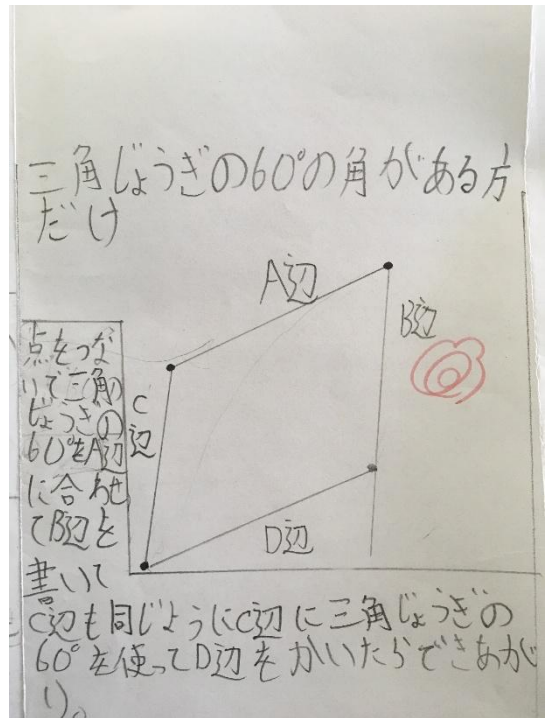 三角じょうぎの60°の角がある方
だけ
A辺
B辺
C
辺
D辺
点をつな
いで三角の
じょうぎの
60°をA辺
に合わせ
てB辺を
書いて
C辺も同じようにC辺に三角じょうぎの
60°を使ってD辺をかいたらできあが
り。